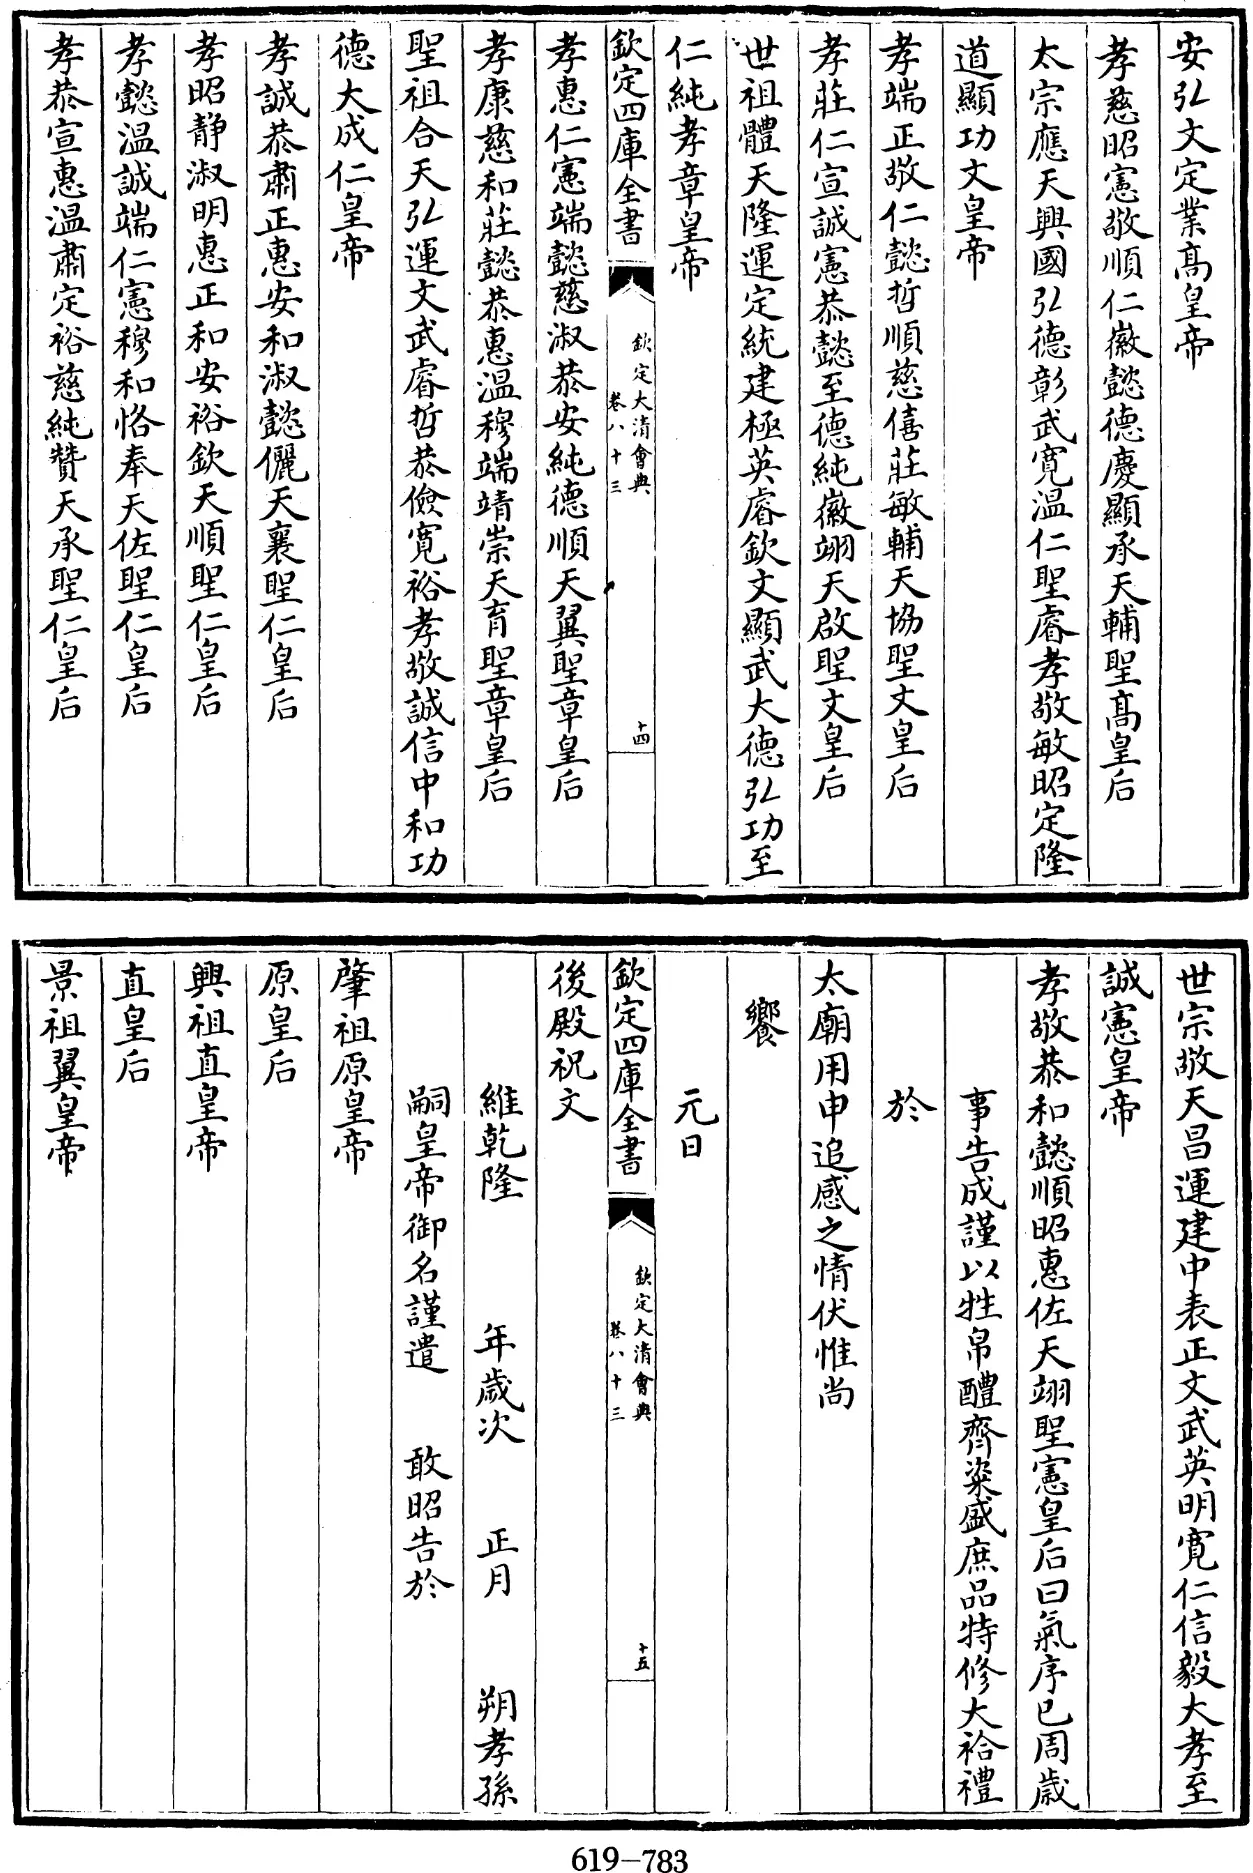 安弘文定業高皇帝
孝慈昭憲敬順仁徽懿德慶顯承天輔聖高皇后
太宗應天興國弘德彰武寛温仁聖睿孝敬敏昭定隆
道顯功文皇帝
孝端正敬仁懿哲順慈僖莊敏輔天協聖文皇后
孝莊仁宣誠憲恭懿至德純徽翊天啟聖文皇后
世祖體天隆運定統建極英睿欽文顯武大德弘功至
仁純孝章皇帝
欽定四庫全書
欽定大清會典
卷八十三
十四
孝惠仁憲端懿慈淑恭安純德順天翼聖章皇后
孝康慈和莊懿恭惠温穆端靖崇天育聖章皇后
聖祖合天弘運文武睿哲恭儉寛裕孝敬誠信中和功
德大成仁皇帝
孝誠恭肅正惠安和淑懿儷天襄聖仁皇后
孝昭靜淑明惠正和安裕欽天順聖仁皇后
孝懿温誠端仁憲穆和恪奉天佐聖仁皇后
孝恭宣惠温肅定裕慈純贊天承聖仁皇后
世宗敬天昌運建中表正文武英明寛仁信毅大孝至
誠憲皇帝
孝敬恭和懿順昭惠佐天翊聖憲皇后曰氣序已周歲
事告成謹以牲帛醴齊粢盛庶品特修大祫禮
於
太廟用申追感之情伏惟尚
饗
元日
欽定四庫全書
欽定大清會典
卷八十三
十五
後殿祝文
維乾隆 年歲次 正月 朔孝孫
嗣皇帝御名謹遣 敢昭告於
肇祖原皇帝
原皇后
興祖直皇帝
直皇后
景祖翼皇帝
619-783